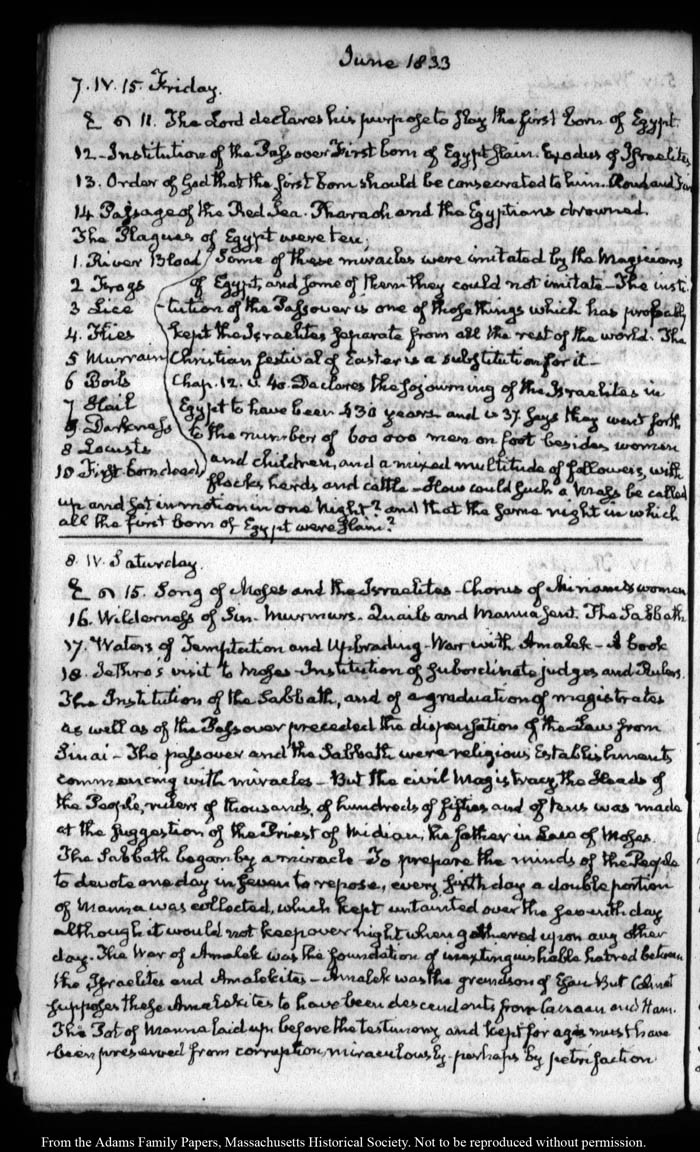 June 1833
7. IV. 15. Friday.
11. The Lord declares his purpose to slay the first born of Egypt.
12. Institution of the Passover First born of Egypt slain. Exodus of Israelites
13. Order of God that the first born should be consecrated to him.
14. Passage of the Red Sea. Pharaoh and the Egyptians drowned.
The Plagues of Egypt were ten;
1. River Blood Some of these miracles were imitated by the Magicians
2 Frogs of Egypt, and some of them they could not imitate - The insti-
3 Lice tution of the Passover is one of those things which has probably
4. Flies kept the Israelites separate from all the rest of the world. The
5 Murrain Christian festival of Easter is a substitution for it -
6 Boils Chap. 12. v. 40. Declares the sojourning of the Israelites in
7 Hail Egypt to have been 430 years and v 37 says they went forth
9 Darkness to the number of 600 000 men on foot besides women
8 Locusts and children, and a mixed multitude of followers, with
10 First born dead flocks, herds and cattle - How could such a Mass be called
up and set in motion in one Night? and that the same night in which
all the first born of Egypt were slain?
8. IV. Saturday.
15. Song of Moses and the Israelites - Chorus of Miriam & women
16. Wilderness of Sin. Murmurs. Quails and Manna sent. The Sabbath.
17. Waters of Temptation and Upbrading - War with Amalek - A book
18. Jethro's visit to Moses - Institution of subordinate judges and Rulers.
The Institution of the Sabbath, and of a graduation of magistrates
as well as of the Passover preceded the dispensation of the Law from
Sinai - The passover and the Sabbath were religious Establishments
commencing with miracles - But the civil Magistracy, the Heads of
the People, rulers of thousands, of hundreds of fifties and of tens was made
at the suggestion of the Priest of Midian, the father in Law of Moses.
The Sabbath began by a miracle - To prepare the minds of the People
to devote one day in seven to repose, every sixth day a double portion
of Manna was collected, which kept untainted over the seventh day
although it would not keep over night when gathered upon any other
day. The War of Amalek was the foundation of inextinguishable hatred between
the Israelites and Amalekites - Amalek was the grandson of Esau But Calmet
supposes these Amalekites to have been descendants from Canaan and Ham.
The Pot of Manna laid up before the testimony and kept for ages must have
been preserved from corruption, miraculously - perhaps by petrifaction
From the Adams Family Papers, Massachusetts Historical Society. Not to be reproduced without permission.